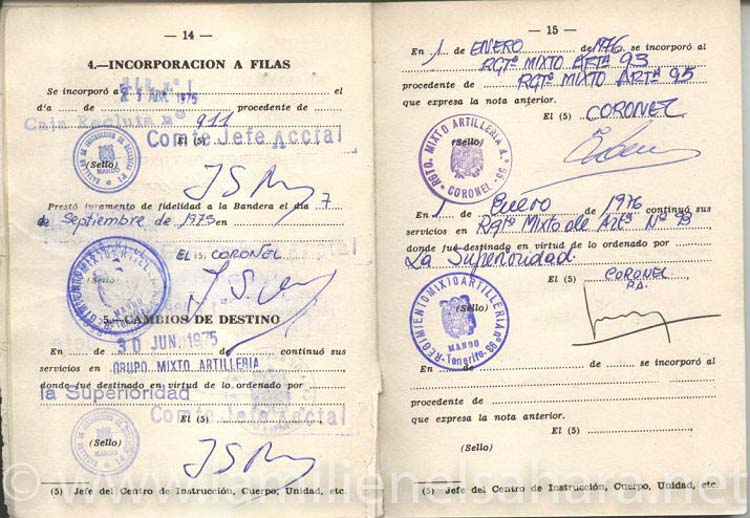 — 14 —
4.—INCORPORACION A FILAS
Se incorporó a el
21 ABR. 1975
día de procedente de
Caja Recluta nº 911
El (5) Comte Jefe Acctal
(Sello)
MANDO
Prestó juramento de fidelidad a la Bandera el día 7
de Septiembre de 1975 en
El (5) CORONEL
(Sello)
MANDO
5.—CAMBIOS DE DESTINO
30 JUN. 1975
En de continuó sus
servicios en GRUPO MIXTO ARTILLERIA
donde fué destinado en virtud de lo ordenado por
la Superioridad
Comte Jefe Acctal
El (5)
(Sello)
MANDO
(5) Jefe del Centro de Instrucción, Cuerpo, Unidad, etc.
— 15 —
En 1 de ENERO de 1976 se incorporó al
RGTº MIXTO ARTª 93
procedente de RGTº MIXTO ARTª 95
que expresa la nota anterior.
El (5) CORONEL
(Sello)
RGTO. MIXTO ARTILLERIA A.º 95.
- CORONEL -
En 1 de Enero de 1976 continuó sus
servicios en Rgtº Mixto de Artª Nº 93
donde fué destinado en virtud de lo ordenado por
La Superioridad
El (5) CORONEL
P.A.
(Sello)
REGIMIENTO MIXTO ARTILLERIA nº 93
MANDO
-Tenerife-
En de de se incorporó al
procedente de
que expresa la nota anterior.
El (5)
(Sello)
(5) Jefe del Centro de Instrucción, Cuerpo, Unidad, etc.
© www.lamilienelsahara.net